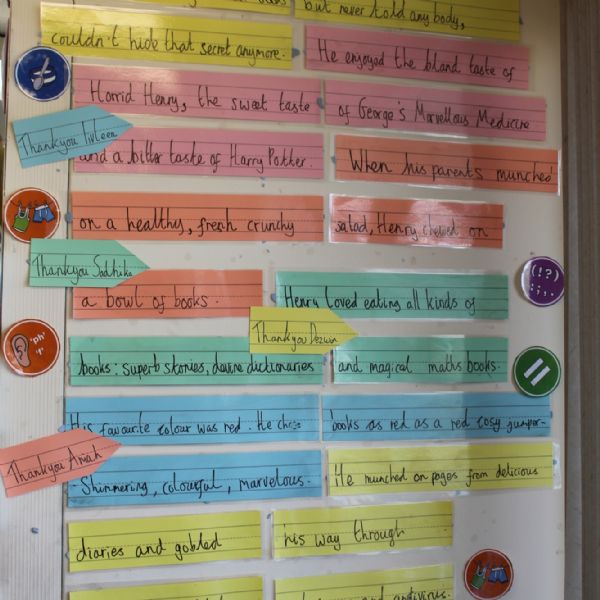 books but never told anybody,
couldn't hide that secret anymore. He enjoyed the bland taste of
Horrid Henry, the sweet taste of George's Marvellous Medicine
Thankyou Tivleen
and a bitter taste of Harry Potter. When his parents munched
on a healthy, fresh crunchy salad, Henry chewed on
Thankyou Sadhika
a bowl of books. Henry loved eating all kinds of
(!?)
:;,.
Thankyou
'ph'
'f'
books: superb stories, devine dictionaries and magical maths books.
His favourite colour was red. He chose books as red as a red cosy jumper-
Thankyou
-Shimmering, colourful, marvelous. He munched on pages from delicious
diaries and gobled his way through
and antivirus.